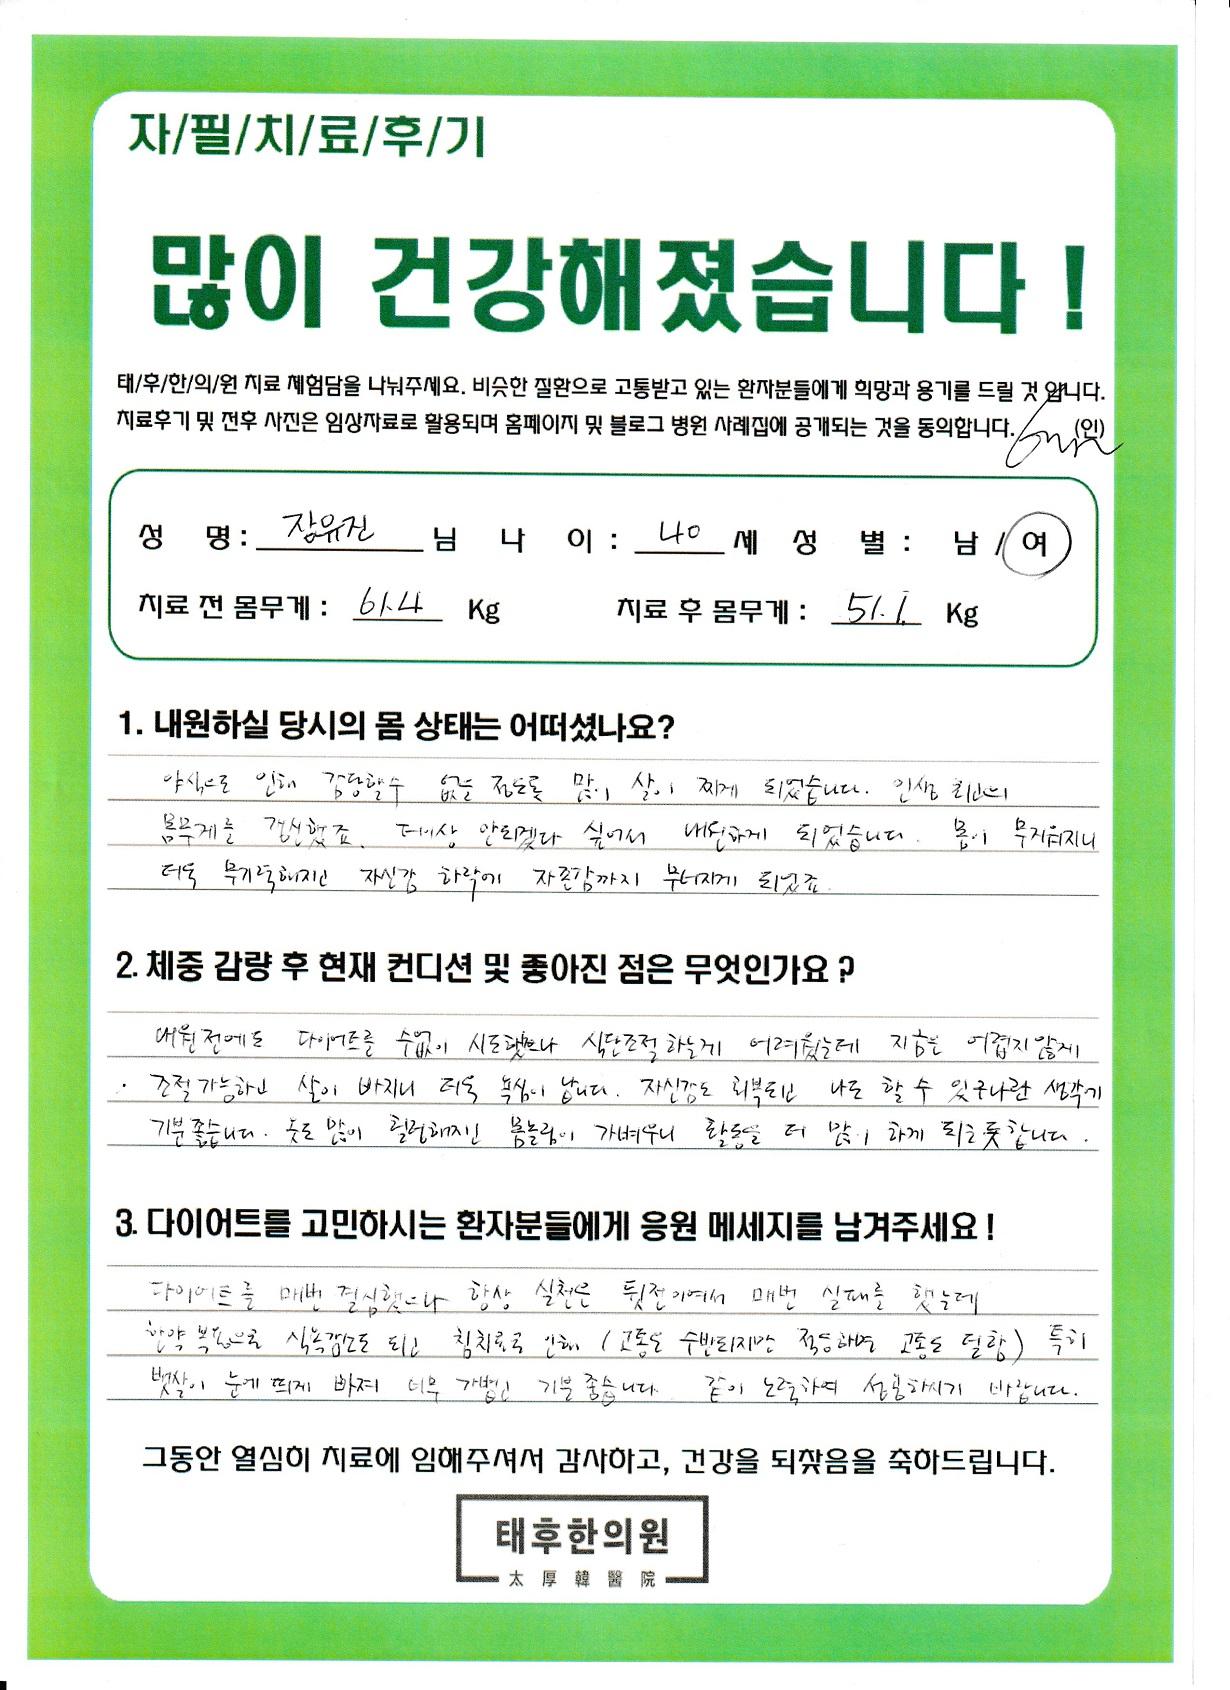 자/필/치/료/후/기
많이 건강해졌습니다 !
태/후/한/의/원 치료 체험담을 나눠주세요. 비슷한 질환으로 고통받고 있는 환자분들에게 희망과 용기를 드릴 것 입니다.
치료후기 및 전후 사진은 임상자료로 활용되며 홈페이지 및 블로그 병원 사례집에 공개되는 것을 동의합니다. (인)
성 명 : 장유진 님 나 이 : 40 세 성 별 : 남 / 여
치료 전 몸무게 : 61.4 Kg 치료 후 몸무게 : 51.1 Kg
1. 내원하실 당시의 몸 상태는 어떠셨나요?
야식으로 인해 감당할수 없을 정도로 많이 살이 찌게 되었습니다. 인생 최고의
몸무게를 갱신했죠. 더이상 안되겠다 싶어서 내원하게 되었습니다. 몸이 무거워지니
더욱 무기력해지고 자신감 하락에 자존감까지 무너지게 되었죠.
2. 체중 감량 후 현재 컨디션 및 좋아진 점은 무엇인가요 ?
내원전에도 다이어트를 수없이 시도했으나 식단조절 하는게 어려웠는데 지금은 어렵지않게
조절가능하고 살이 빠지니 더욱 욕심이 납니다. 자신감도 회복되고 나도 할 수 있구나란 생각에
기분좋습니다. 옷도 많이 헐렁해지고 몸놀림이 가벼우니 활동을 더 많이 하게 되는듯합니다.
3. 다이어트를 고민하시는 환자분들에게 응원 메세지를 남겨주세요 !
다이어트를 매번 결심했으나 항상 실천은 뒷전이여서 매번 실패를 했는데
한약 복용으로 식욕감소도 되고 침치료로 인해 (고통도 수반되지만 적응하면 고통도 덜함) 특히
뱃살이 눈에 띄게 빠져 너무 가볍고 기분 좋습니다. 같이 노력하여 성공하시기 바랍니다.
그동안 열심히 치료에 임해주셔서 감사하고, 건강을 되찾음을 축하드립니다.
태후한의원
太 厚 韓 醫 院